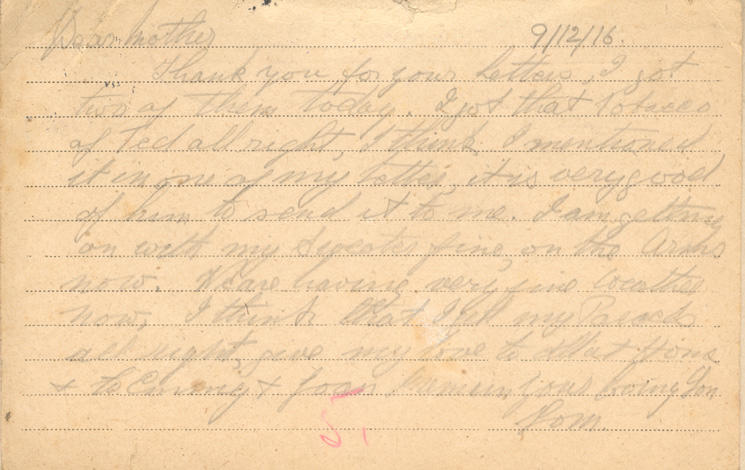 Dear mother 9/12/16.
Thank you for your letters, I got
two of them today. I got that tobacco
of Ted all right, I think I mentioned
it in one of my letter, it is very good
of him to send it to me. I am getting
on with my sweater fine, on the Arms
now. We are having very fine weather
now, I think that I got my
all right, give my love to all at Home
& to & Joan remain your loving Son
Tom.
5.